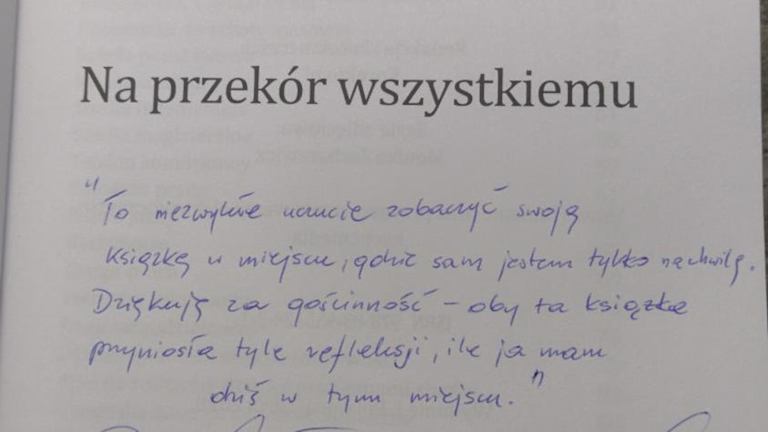 Na przekór wszystkiemu
"To niezwykłe uczucie zobaczyć swoją
książkę w miejscu, gdzie sam jestem tylko na chwilę.
Dziękuję za gościnność – oby ta książka
przyniosła tyle refleksji, ile ja mam
dziś w tym miejscu."